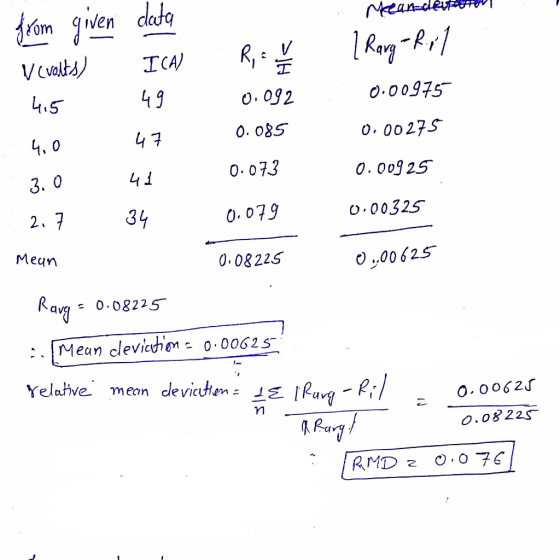 from given data
V(volts) I(A) R₁ = V/I |Ravg - Ri|
4.5 49 0.092 0.00975
4.0 47 0.085 0.00275
3.0 41 0.073 0.00925
2.7 34 0.079 0.00325
Mean 0.08225 0.00625
Ravg = 0.08225
∴ Mean deviction = 0.00625
relative mean deviction = 1/n Σ |Ravg - Ri| / |Ravg| = 0.00625 / 0.08225
∴ RMD = 0.076